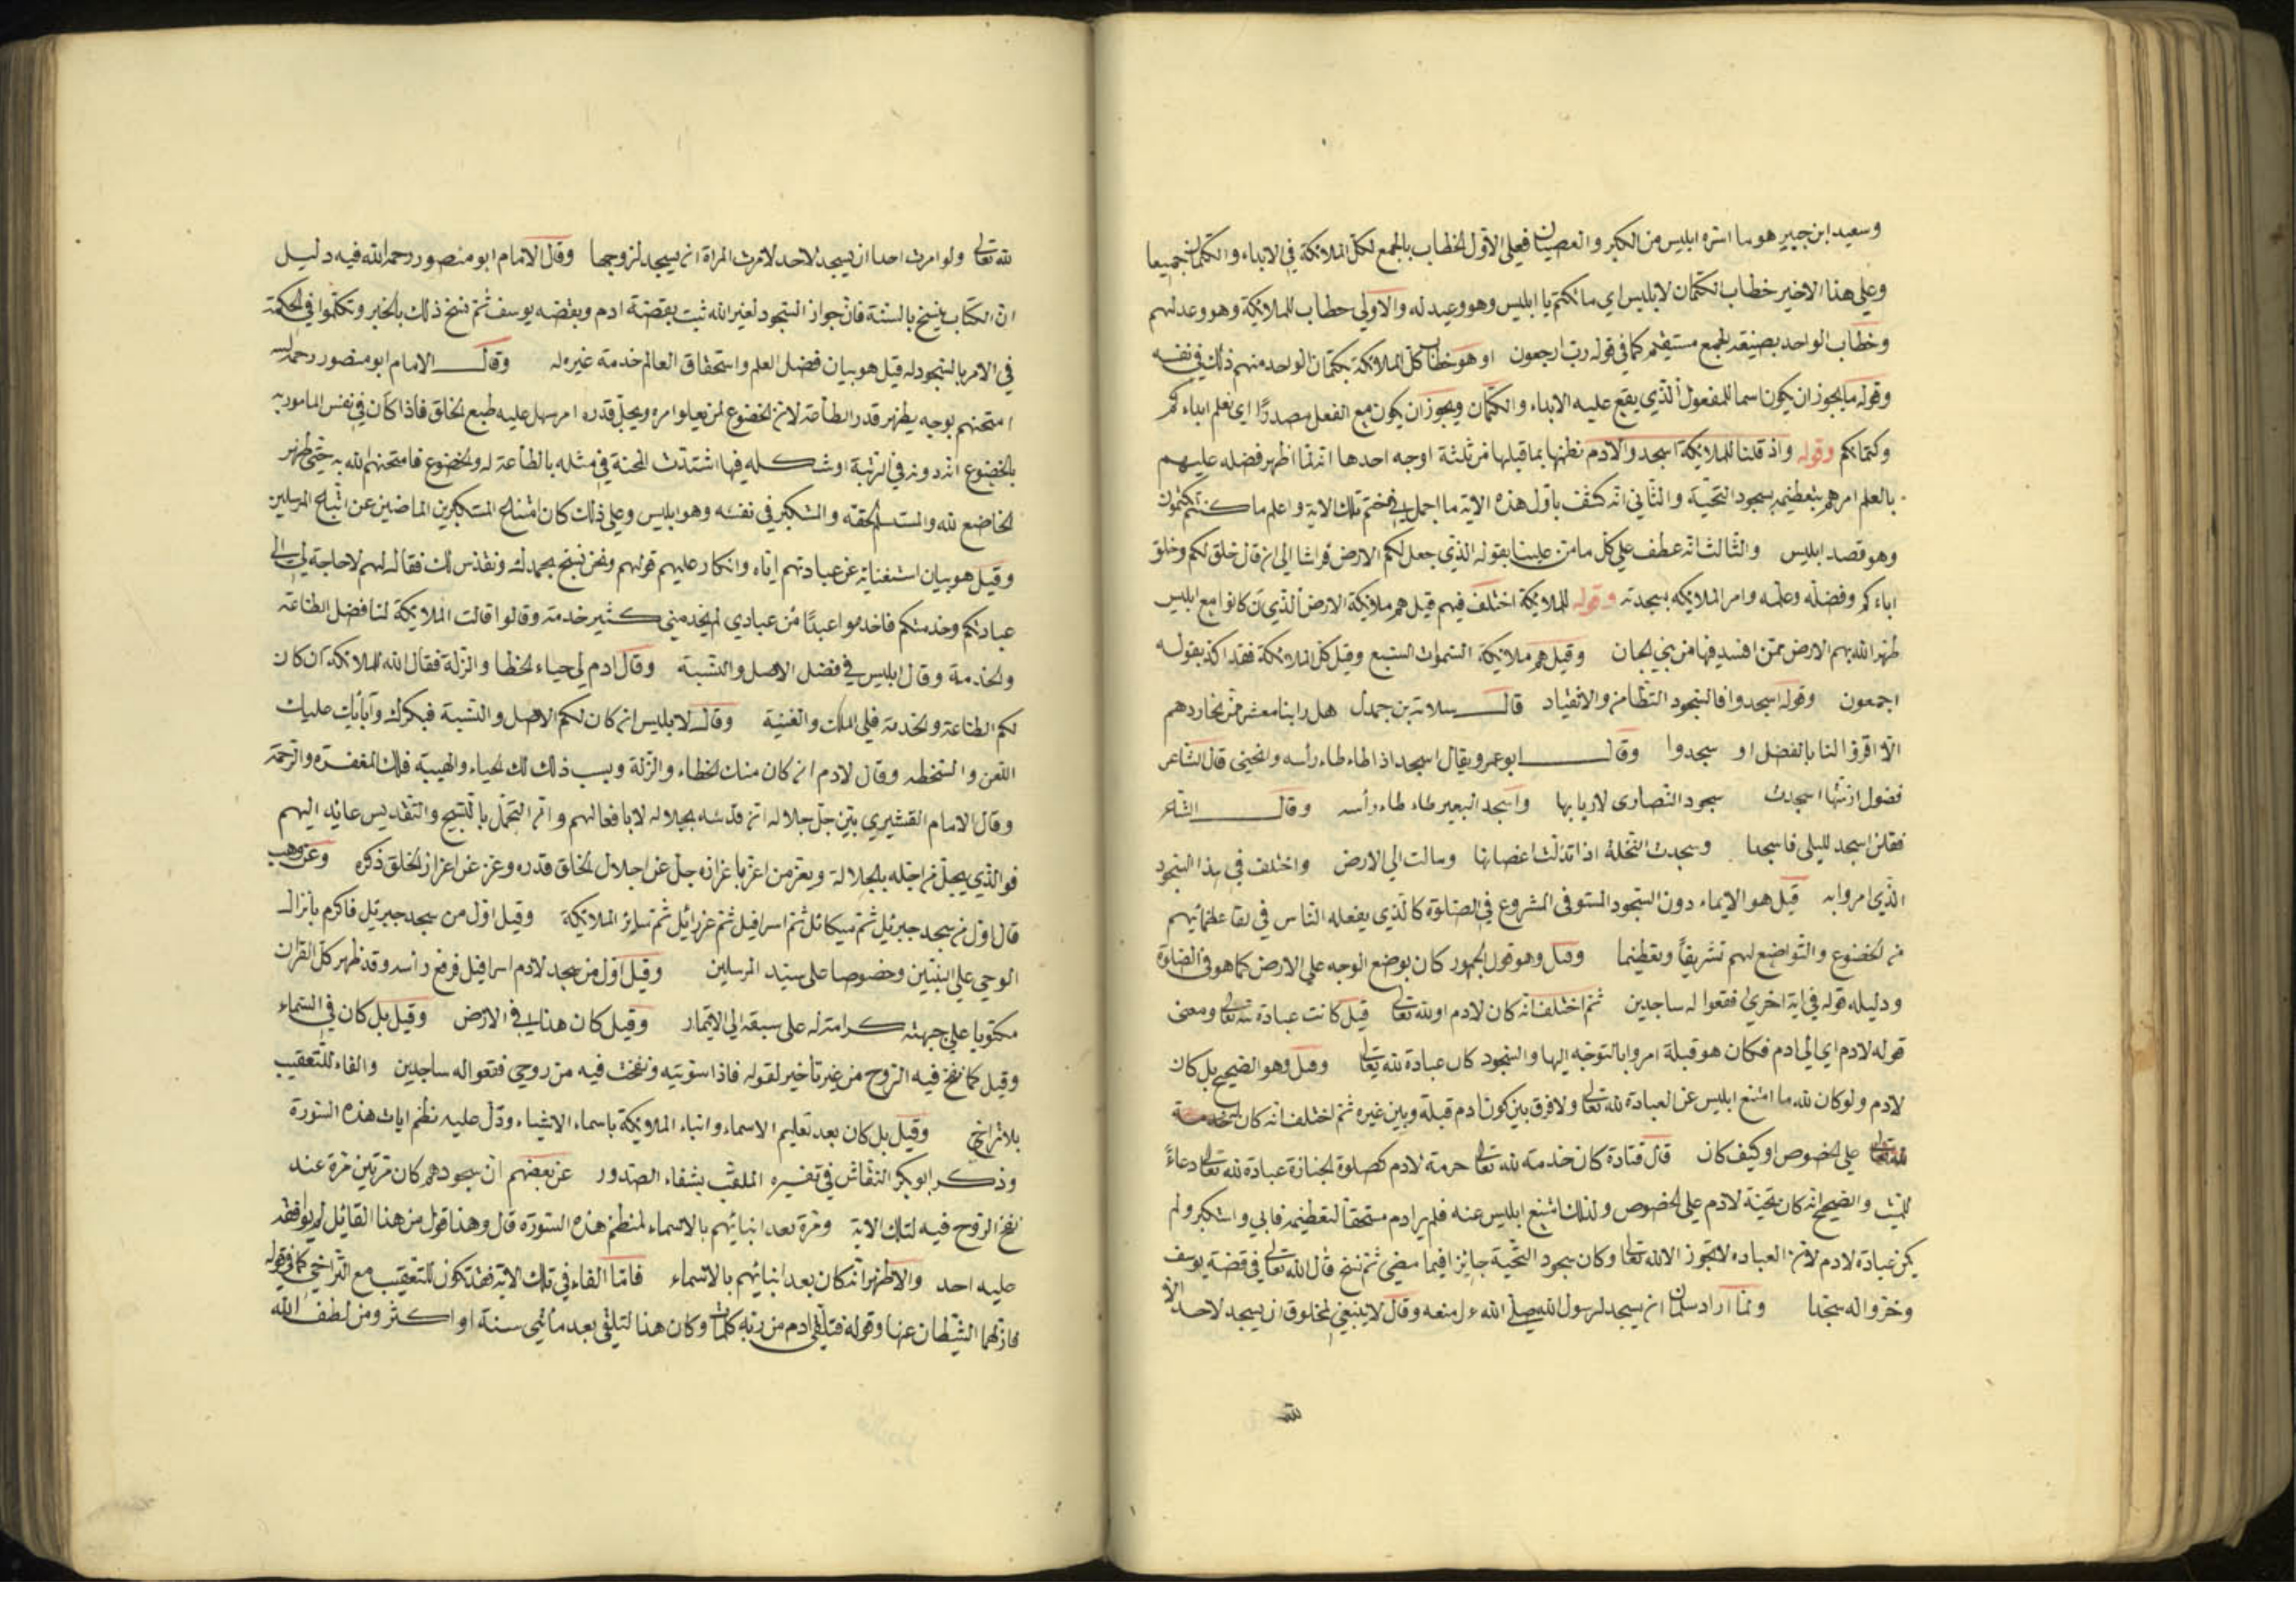 وسعيد ابن جبير هو ما اسره ابليس من الكبر والعصيان فعلى الاول الخطاب بالجمع لكل الملائكة في الابداء والكتمان جميعا
وعلى هذا الاخير خطاب الكتمان لابليس اي ما تكتم يا ابليس وهو وعيد له والاولى خطاب للملائكة وهو وعد لهم
وخطاب الواحد بصيغة الجمع مستقيم كما في قوله رب ارجعون او هو خطاب كل الملائكة بكتمان الواحد منهم ذلك في نفسه
وقوله ما يجوز ان يكون اسما للمفعول الذي يقع عليه الابداء والكتمان ويجوز ان يكون مع الفعل مصدرًا اي نعلم ابداءكم
وكتمانكم وقوله واذ قلنا للملائكة اسجدوا لادم نظمها بما قبلها من ثلثة اوجه احدها انه لما اظهر فضله عليهم
بالعلم امرهم بتعظيمه بسجود التحية والثاني انه كشف باول هذه الاية ما اجمل في ختم تلك الاية واعلم ما كنتم تكتمون
وهو قصد ابليس والثالث انه عطف على كل ما من علينا بقوله الذي جعل لكم الارض فراشا الى ان قال خلق لكم وخلق
اباءكم وفضله وعلمه وامر الملائكه بسجدته وقوله للملائكة اختلف فيهم قيل هم ملائكة الارض الذين كانوا مع ابليس
طهر الله بهم الارض ممن افسد فيها من بني الجان وقيل هم ملائكة السموات السبع وقيل كل الملائكة فقد اكد بقوله
اجمعون وقوله اسجدوا فالسجود التطامن والانقياد قال سلامة بن جندل هل رابنا معشر من نخاردهم
الا اقروا لنا بالفضل او سجدوا وقال ابو عمرو يقال اسجد اذا طاءطاء رأسه وانحنى قال الشاعر
فضول ازمتها اسجدت سجود النصارى لاربابها واسجد البعير طاءطاء رأسه وقال الشاعر
فقلن اسجد لليلى فاسجدا وسجدت النخلة اذا تدلت اغصانها وسالت الى الارض واختلف في هذا السجود
الذي امروا به قيل هو الايماء دون السجود المستوفى المشروع في الصلوة كالذي يفعله الناس في لقاء عظمائهم
من الخضوع والتواضع لهم تشريفاً وتعظيما وقيل وهو قول الجمهور كان بوضع الوجه على الارض كما هو في الصلوة
ودليله قوله في اية اخرى فقعوا له ساجدين ثم اختلف انه كان لادم او لله تعالى قيل كانت عبادة لله تعالى ومعنى
قوله لادم اي الى ادم فكان هو قبلة امروا بالتوجه اليها والسجود كان عبادة لله تعالى وقيل وهو الصحيح بل كان
لادم ولو كان لله ما امتنع ابليس عن العبادة لله تعالى ولا فرق بين كون ادم قبلة وبين غيره ثم اختلف انه كان خدمة
لله تعالى على الخصوص او كيف كان قال قتادة كان خدمة لله تعالى حرمة لادم كصلوة الجنازة عبادة لله تعالى دعاءً
للميت والصحيح انه كان تحية لادم على الخصوص ولذلك امتنع ابليس عنه فلم ير ادم مستحقا لتعظيمه فابى واستكبر ولم
يكن عبادة لادم لان العباده لا تجوز الا لله تعالى وكان سجود التحية جايزا فيما مضى ثم نسخ قال الله تعالى في قصة يوسف
وخروا له سجدا ولما اراد سلمان ان يسجد لرسول الله صلى الله ءلم منعه وقال لا ينبغي لمخلوق ان يسجد لاحد الا
لله
لله تعالى ولو امرت احدا ان يسجد لاحد لامرت المراة ان يسجد لزوجها وقال الامام ابو منصور رحمه الله فيه دليل
ان الكتاب ينسخ بالسنة فان جواز السجود لغير الله ثبت بقصة ادم وبقصه يوسف ثم نسخ ذلك بالخبر وتكلموا في الحكمة
في الامر بالسجود له قيل هو بيان فضل العلم واستحقاق العالم خدمة غيره له وقال الامام ابو منصور رحمه الله
امتحنهم بوجه يظهر قدر الطاعة لان الخضوع لمن يعلو امره ويجل قدره امر سهل عليه طبع الخلق فاذا كان في نفس المامور به
بالخضوع انه دونه في الرتبة او شكله فيها اشتدت المحنة في مثله بالطاعة له والخضوع فامتحنهم الله به حتى ظهر
الخاضع لله والمستسلم لحقه والمتكبر في نفسه وهو ابليس وعلى ذلك كان امتناع المتكبرين الماضين عن اتباع المرسلين
وقيل هو بيان استغنائه عن عبادتهم اياه وانكار عليهم قولهم ونحن نسبح بحمدك ونقدس لك فقال لهم لا حاجة لي الى
عبادتكم وخدمتكم فاخدموا عبدًا من عبادي لم يخدمني كثير خدمة وقالوا قالت الملائكة لنا فضل الطاعة
والخدمة وقال ابليس في فضل الاصل والنسبة وقال ادم لي حياء الخطا والزلة فقال الله للملائكة ان كان
لكم الطاعة والخدمة فلي الملك والغنية وقال لابليس ان كان لكم الاصل والنسبة فبكرك وآبائك عليك
اللعن والسخطه وقال لادم ان كان منك الخطاء والزلة وبسب ذلك لك الحياء والهيبة فلك المغفرة والرحمة
وقال الامام القشيري بين جل جلاله ان قدسه بجلاله لا بافعالهم وان التجمل بالتسبيح والتقديس عائد اليهم
فوالذي يجل من اجله بالجلالة ويعز من اعز باعزازه جل عن اجلال الخلق قدره وعز عن اعزاز الخلق ذكره وعن وهب
قال اول من سجد جبرئيل ثم ميكائل ثم اسرافيل ثم عزرائيل ثم سائر الملائكة وقيل اول من سجد جبرئيل فاكرم بانزال
الوحي على النبيين وخصوصا على سيد المرسلين وقيل اول من سجد لادم اسرافيل فرفع رأسه وقد ظهر كل القران
مكتوبا على جبهته كرامة له على سبقه الى الايتمار وقيل كان هذا في الارض وقيل بل كان في السماء
وقيل كما نفخ فيه الروح من غير تأخير لقوله فاذا سويته ونفخت فيه من روحي فقعوا له ساجدين والفاء للتعقيب
بلا تراخ وقيل بل كان بعد تعليم الاسماء وانباء الملائكة باسماء الاشياء ودل عليه نظم ايات هذه السورة
وذكر ابو بكر النقاش في تفسيره الملقب بشفاء الصدور عن بعضهم ان سجودهم كان مرتين مرة عند
نفخ الروح فيه لتلك الاية ومرة بعد انبائهم بالاسماء لمنظم هذه السورة قال وهذا قول من هذا القائل لم يوافقه
عليه احد والاظهر انه كان بعد انبائهم بالاسماء فاما الفاء في تلك الاية فقد تكون للتعقيب مع التراخي كما في قوله
فازلهما الشيطان عنها وقوله فتلقى ادم من ربه كلمات وكان هذا التلقي بعد مأتي سنة او اكثر ومن لطف الله